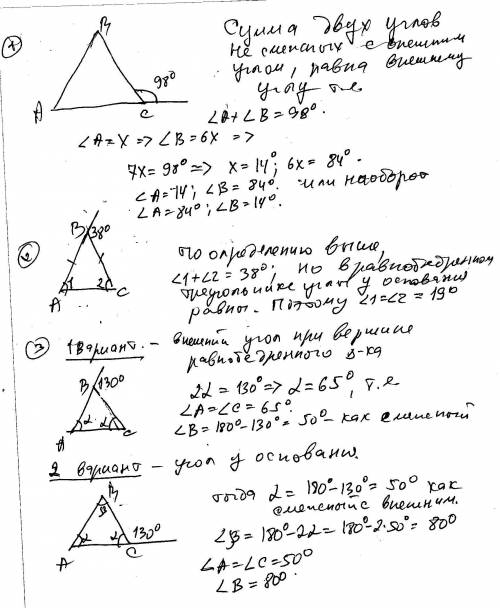 1
B
98°
A
C
Сумма двух углов
не смежных с внешним
углом, равна внешнему
углу т.е
∠A+∠B=98°.
∠A=x => ∠B=6x =>
7x=98° => x=14°; 6x=84°.
∠A=14; ∠B=84°. или наоборот
∠A=84°; ∠B=14°.
2
B 38°
1 2
A C
По определению выше,
∠1+∠2=38°; но в равнобедренном
треугольнике углы у основания
равны. Поэтому ∠1=∠2=19°
3 1 вариант. – внешний угол при вершине
равнобедренного Δ-ка
B 130°
α α
A C
2α=130° => α=65°, т.е
∠A=∠C=65°.
∠B=180°-130°=50° - как смежный
2 вариант – угол у основания.
B
β
α α 130°
A C
тогда α=180°-130°=50° как
смежный с внешним.
∠β=180°-2α=180°-2·50°=80°
∠A=∠C=50°
∠B=80°.